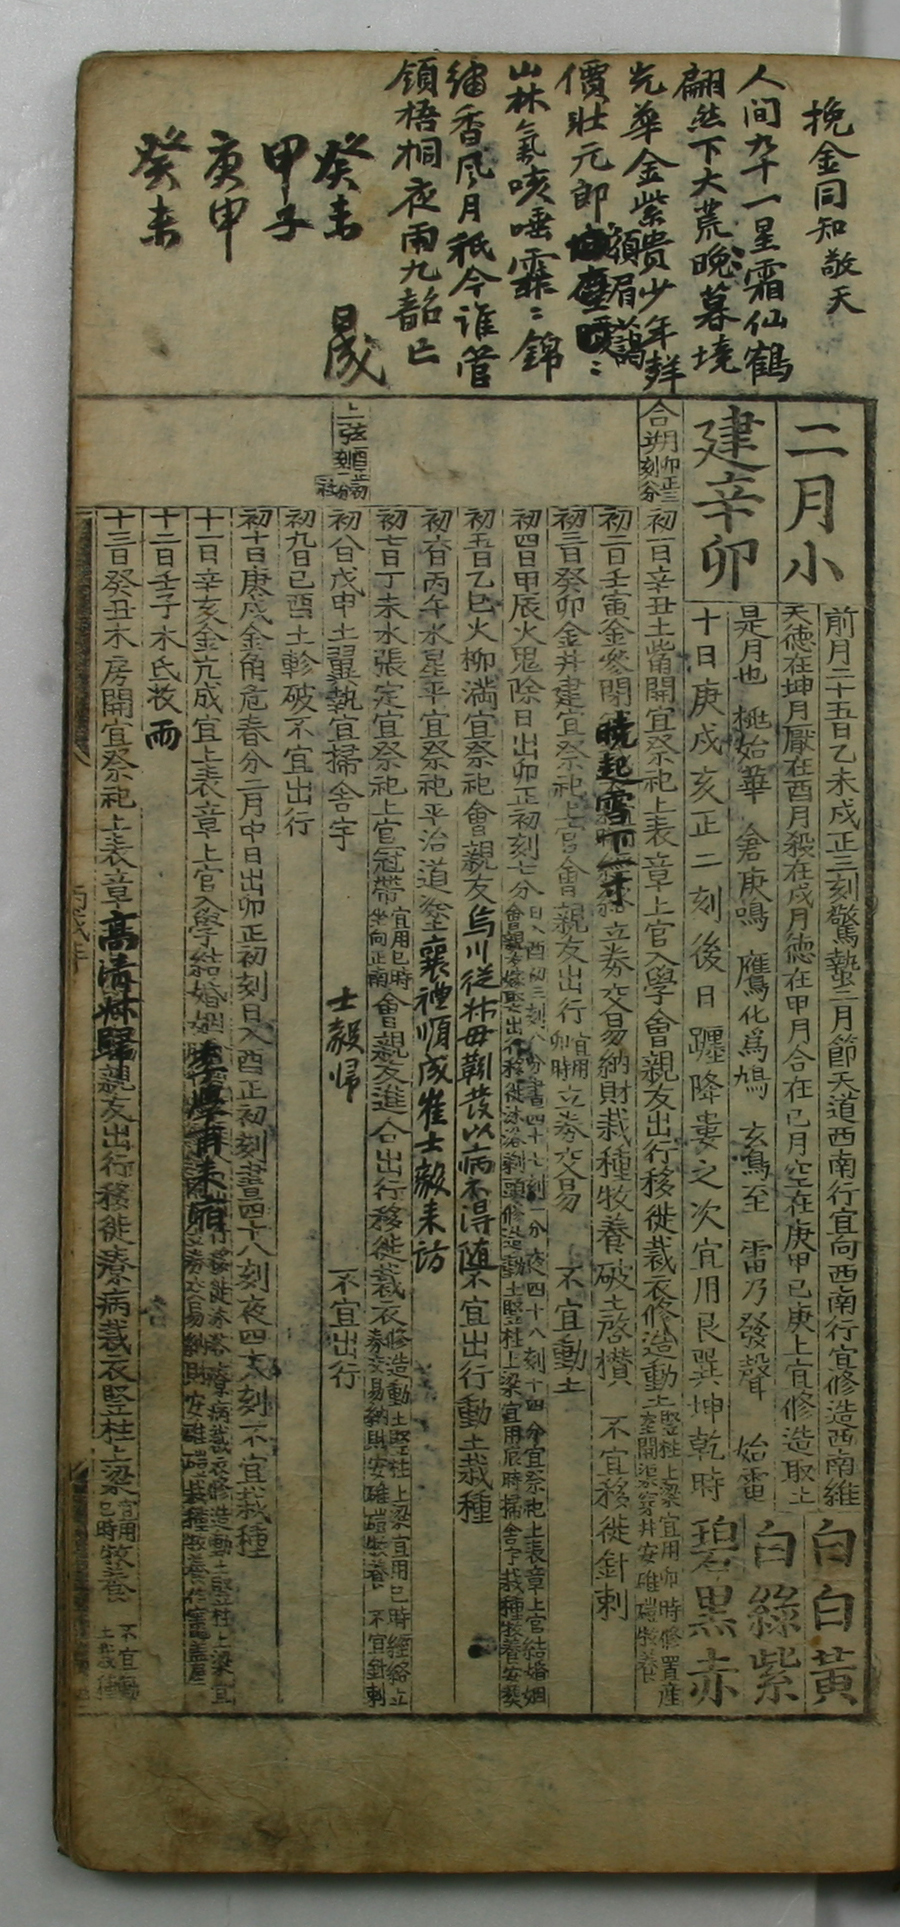 挽金同知敬天
人间九十一星霜仙鶴
翩然下大荒晚暮境
光華金紫贵少年鲜
價壯元郎 額眉藹
山林氣咳唾霏〻錦
繡香风月祇今谁管
領梧桐夜雨九韶亡
癸未 晟
甲子
庚申
癸未
二月小
建辛卯
前月二十五日乙未戌正三刻驚蟄二月節天道西南行宜向西南行宜修造西南維
天德在坤月厭在酉月殺在戌月德在甲月合在己月空在庚甲己庚上宜修造取土
是月也 桃始華 倉庚鳴 鷹化爲鳩 玄鳥至 雷乃發聲 始電
十日庚戌亥正二刻後日躔降婁之次宜用艮巽坤乾時
白白黄
白綠紫
碧黑赤
合朔卯正三刻分
初一日辛丑土觜開宜祭祀上表章上官入學會親友出行移徙裁衣修造動土竪柱上梁宜用卯時修置産室開渠穿井安碓磑牧養
初二日壬寅金參閉 曉起雪下一寸 立券交易納財栽種牧養破土啓攢 不宜移徙針刺
初三日癸卯金井建宜祭祀上官會親友出行宜用卯時立券交易 不宜動土
初四日甲辰火鬼除日出卯正初刻七分日入酉初三刻八分晝四十七刻一分夜四十八刻十四分宜祭祀上表章上官結婚姻會親友嫁娶出行移徙沐浴剃頭修造動土竪柱上梁宜用辰時掃舍宇栽種牧養安葬
初五日乙巳火柳滿宜祭祀會親友烏川従妹毋靷發以病不得随不宜出行動土栽種
初六日丙午水星平宜祭祀平治道塗襄禮順成崔士毅来访
初七日丁未水張定宜祭祀上官冠帶宜用巳時坐向正南會親友進人口出行移徙裁衣修造動土竪柱上梁宜用巳時經絡立券交易納財安碓磑牧養 不宜針刺
上弦酉正初刻一分 社
初八日戊申土翼執宜掃舍宇 士毅歸 不宜出行
初九日己酉土軫破不宜出行
初十日庚戌金角危春分二月中日出卯正初刻日入酉正初刻晝四十八刻夜四十八刻不宜栽種
十一日辛亥金亢成宜上表章上官入學結婚姻 李學甫来宿 行移徙沐浴療病裁衣修造動土竪柱上梁宜 立券交易納財安碓磑栽種牧養
十二日壬子木氐收 雨
十三日癸丑木房開宜祭祀上表章高清妹歸親友出行移徙療病裁衣竪柱上梁宜用巳時牧養 不宜動土栽種